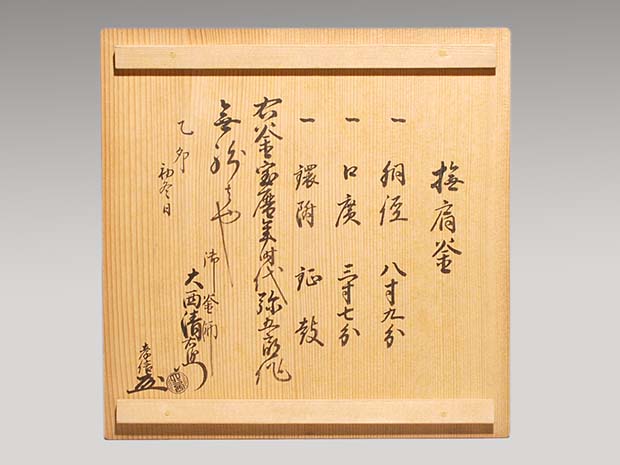 撫肩釜
一 胴径 八寸九分
一 口廣 三寸七分
一 鐶附 鉦鼓
右釜室暦年時代弥五郎作
無紛者也
乙卯 初冬日
御釜師
大西清右衛門